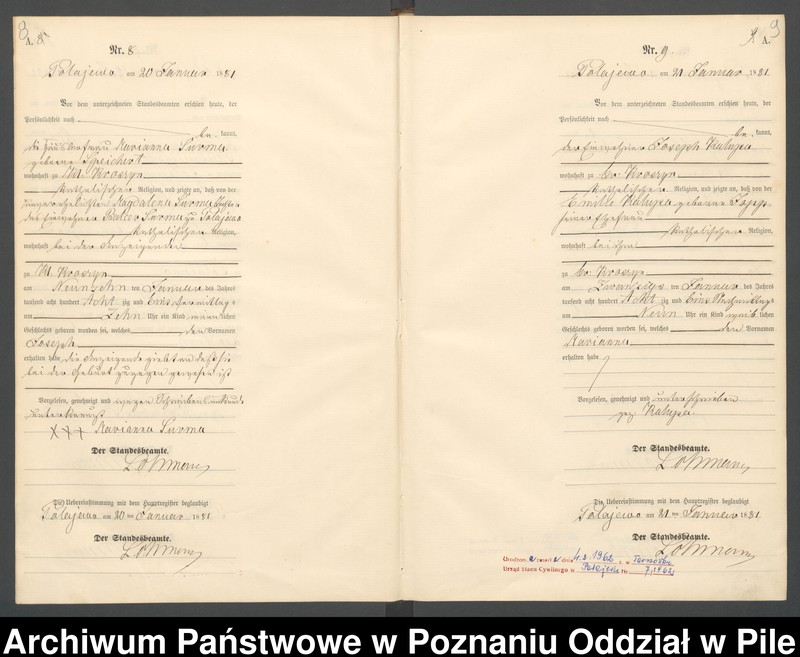 8
A. 8
Nr. 8
Polajewo am 20 Januar 1881
Vor dem unterzeichneten Standesbeamten erschien heute, der
Persönlichkeit nach
be kannt,
die Hausfrau Marianna Surma
geborene Speichert
wohnhaft zu Kl. Kroszyn
katholischer Religion, und zeigte an, daß von der
Magdalena Surma
des Einwohner Surma zu Polajewo
katholischer Religion,
wohnhaft bei der Anzeigenden
zu Kl. Kroszyn
am Neunzehn ten Januar des Jahres
tausend acht hundert Acht zig und Eins Vormittags
um Zehn Uhr ein Kind männ lichen
Geschlechts geboren worden sei, welches den Vornamen
Joseph
erhalten habe die Anzeigende
bei der Geburt zugegen gewesen ist
Vorgelesen, genehmigt und wegen Schreibensunkunde
unterkreuzt
+++ Marianna Surma
Der Standesbeamte.
Lohmann
Die Uebereinstimmung mit dem Hauptregister beglaubigt
Polajewo am 20 ten Januar 1881
Der Standesbeamte.
Lohmann
9
A.
Nr. 9
Polajewo am 21 Januar 1881
Vor dem unterzeichneten Standesbeamten erschien heute, der
Persönlichkeit nach
be kannt,
der Einwohner Joseph Kaluza
wohnhaft zu Gr. Kroszyn
katholischer Religion, und zeigte an, daß von der
Emilie Kaluza geborene
seiner Ehefrau
katholischer Religion,
wohnhaft bei ihm
zu Gr. Kroszyn
am Zwanzigs ten Januar des Jahres
tausend acht hundert Acht zig und Eins Nachmittags
um Neun Uhr ein Kind weib lichen
Geschlechts geboren worden sei, welches den Vornamen
Marianna
erhalten habe
Vorgelesen, genehmigt und unterschrieben
gez. Kaluza.
Der Standesbeamte.
Lohmann
Die Uebereinstimmung mit dem Hauptregister beglaubigt
Polajewo am 21 ten Januar 1881
Der Standesbeamte.
Lohmann
Urodzon a zmarł a dnia 4.2.1962 r. w
Urząd Stanu Cywilnego w Połajewie Nr 7/1962
Archiwum Państwowe w Poznaniu Oddział w Pile